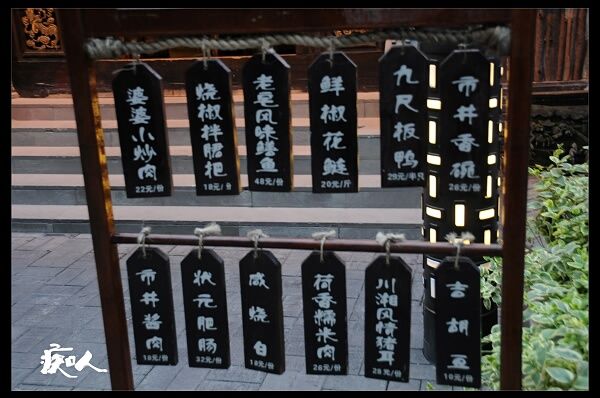 婆婆小炒肉
22元/份
烧椒拌腊肥
18元/份
老皂风味鳝鱼
48元/份
鲜椒花鲢
20元/斤
九尺板鸭
29元/半只
市井香碗
26元/份
市井酱肉
18元/份
状元肥肠
32元/份
咸烧白
18元/份
荷香糯米肉
26元/份
川湘风情猪耳
28元/份
吉胡豆
10元/份